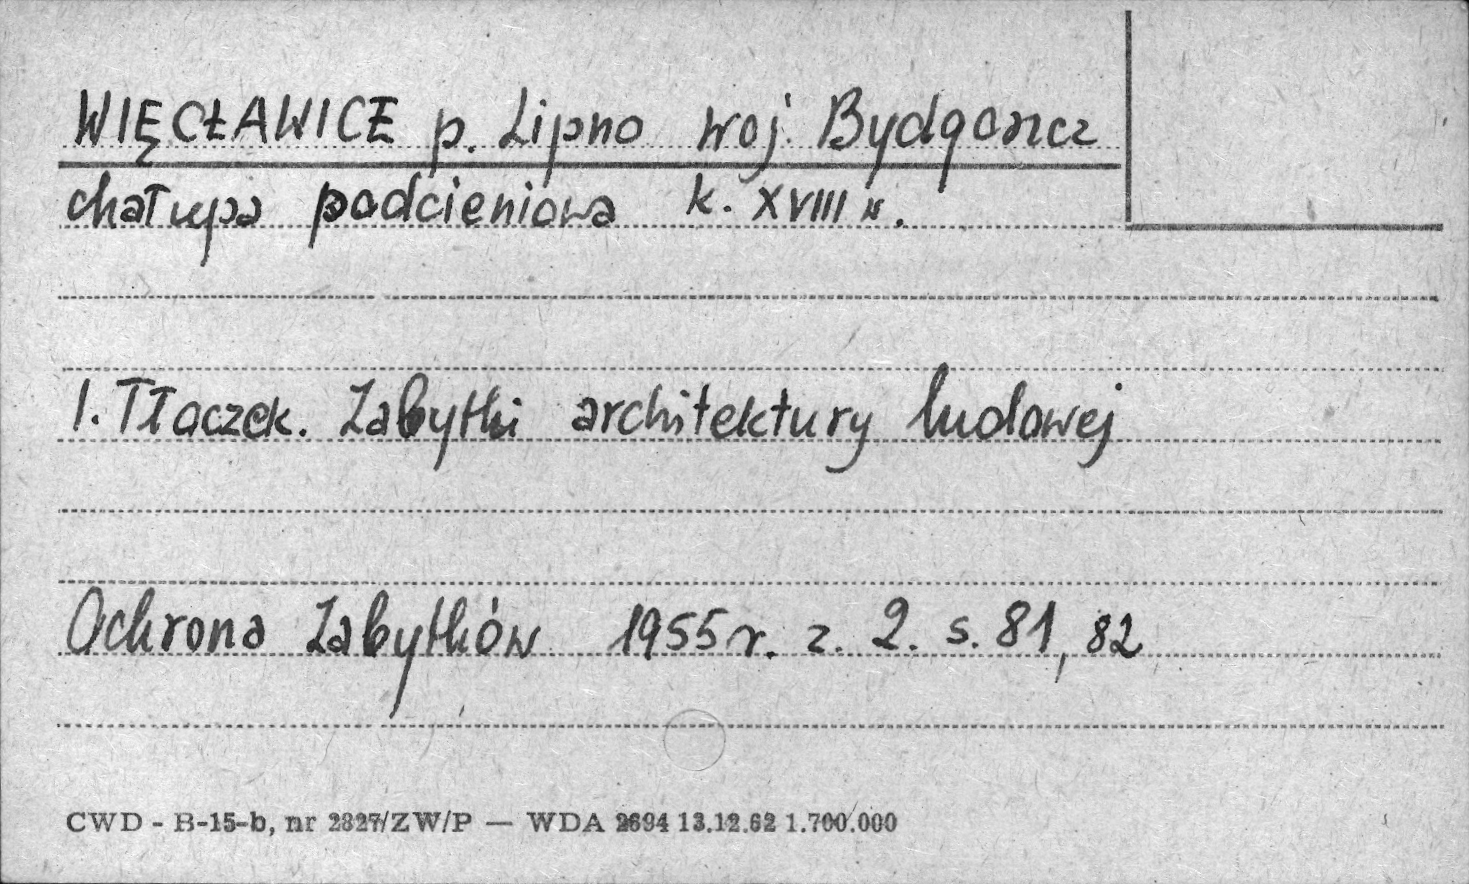 WIĘCŁAWICE p. Lipno woj. Bydgoszcz
chałupa podcieniowa k. XVIII w.
I. Tłoczek. Zabytki architektury ludowej
Ochrona Zabytków 1955 r. z. 2. s. 81, 82
CWD - B-15-b, nr 2827/ZW/P — WDA 2694 13.12.62 1.700.000